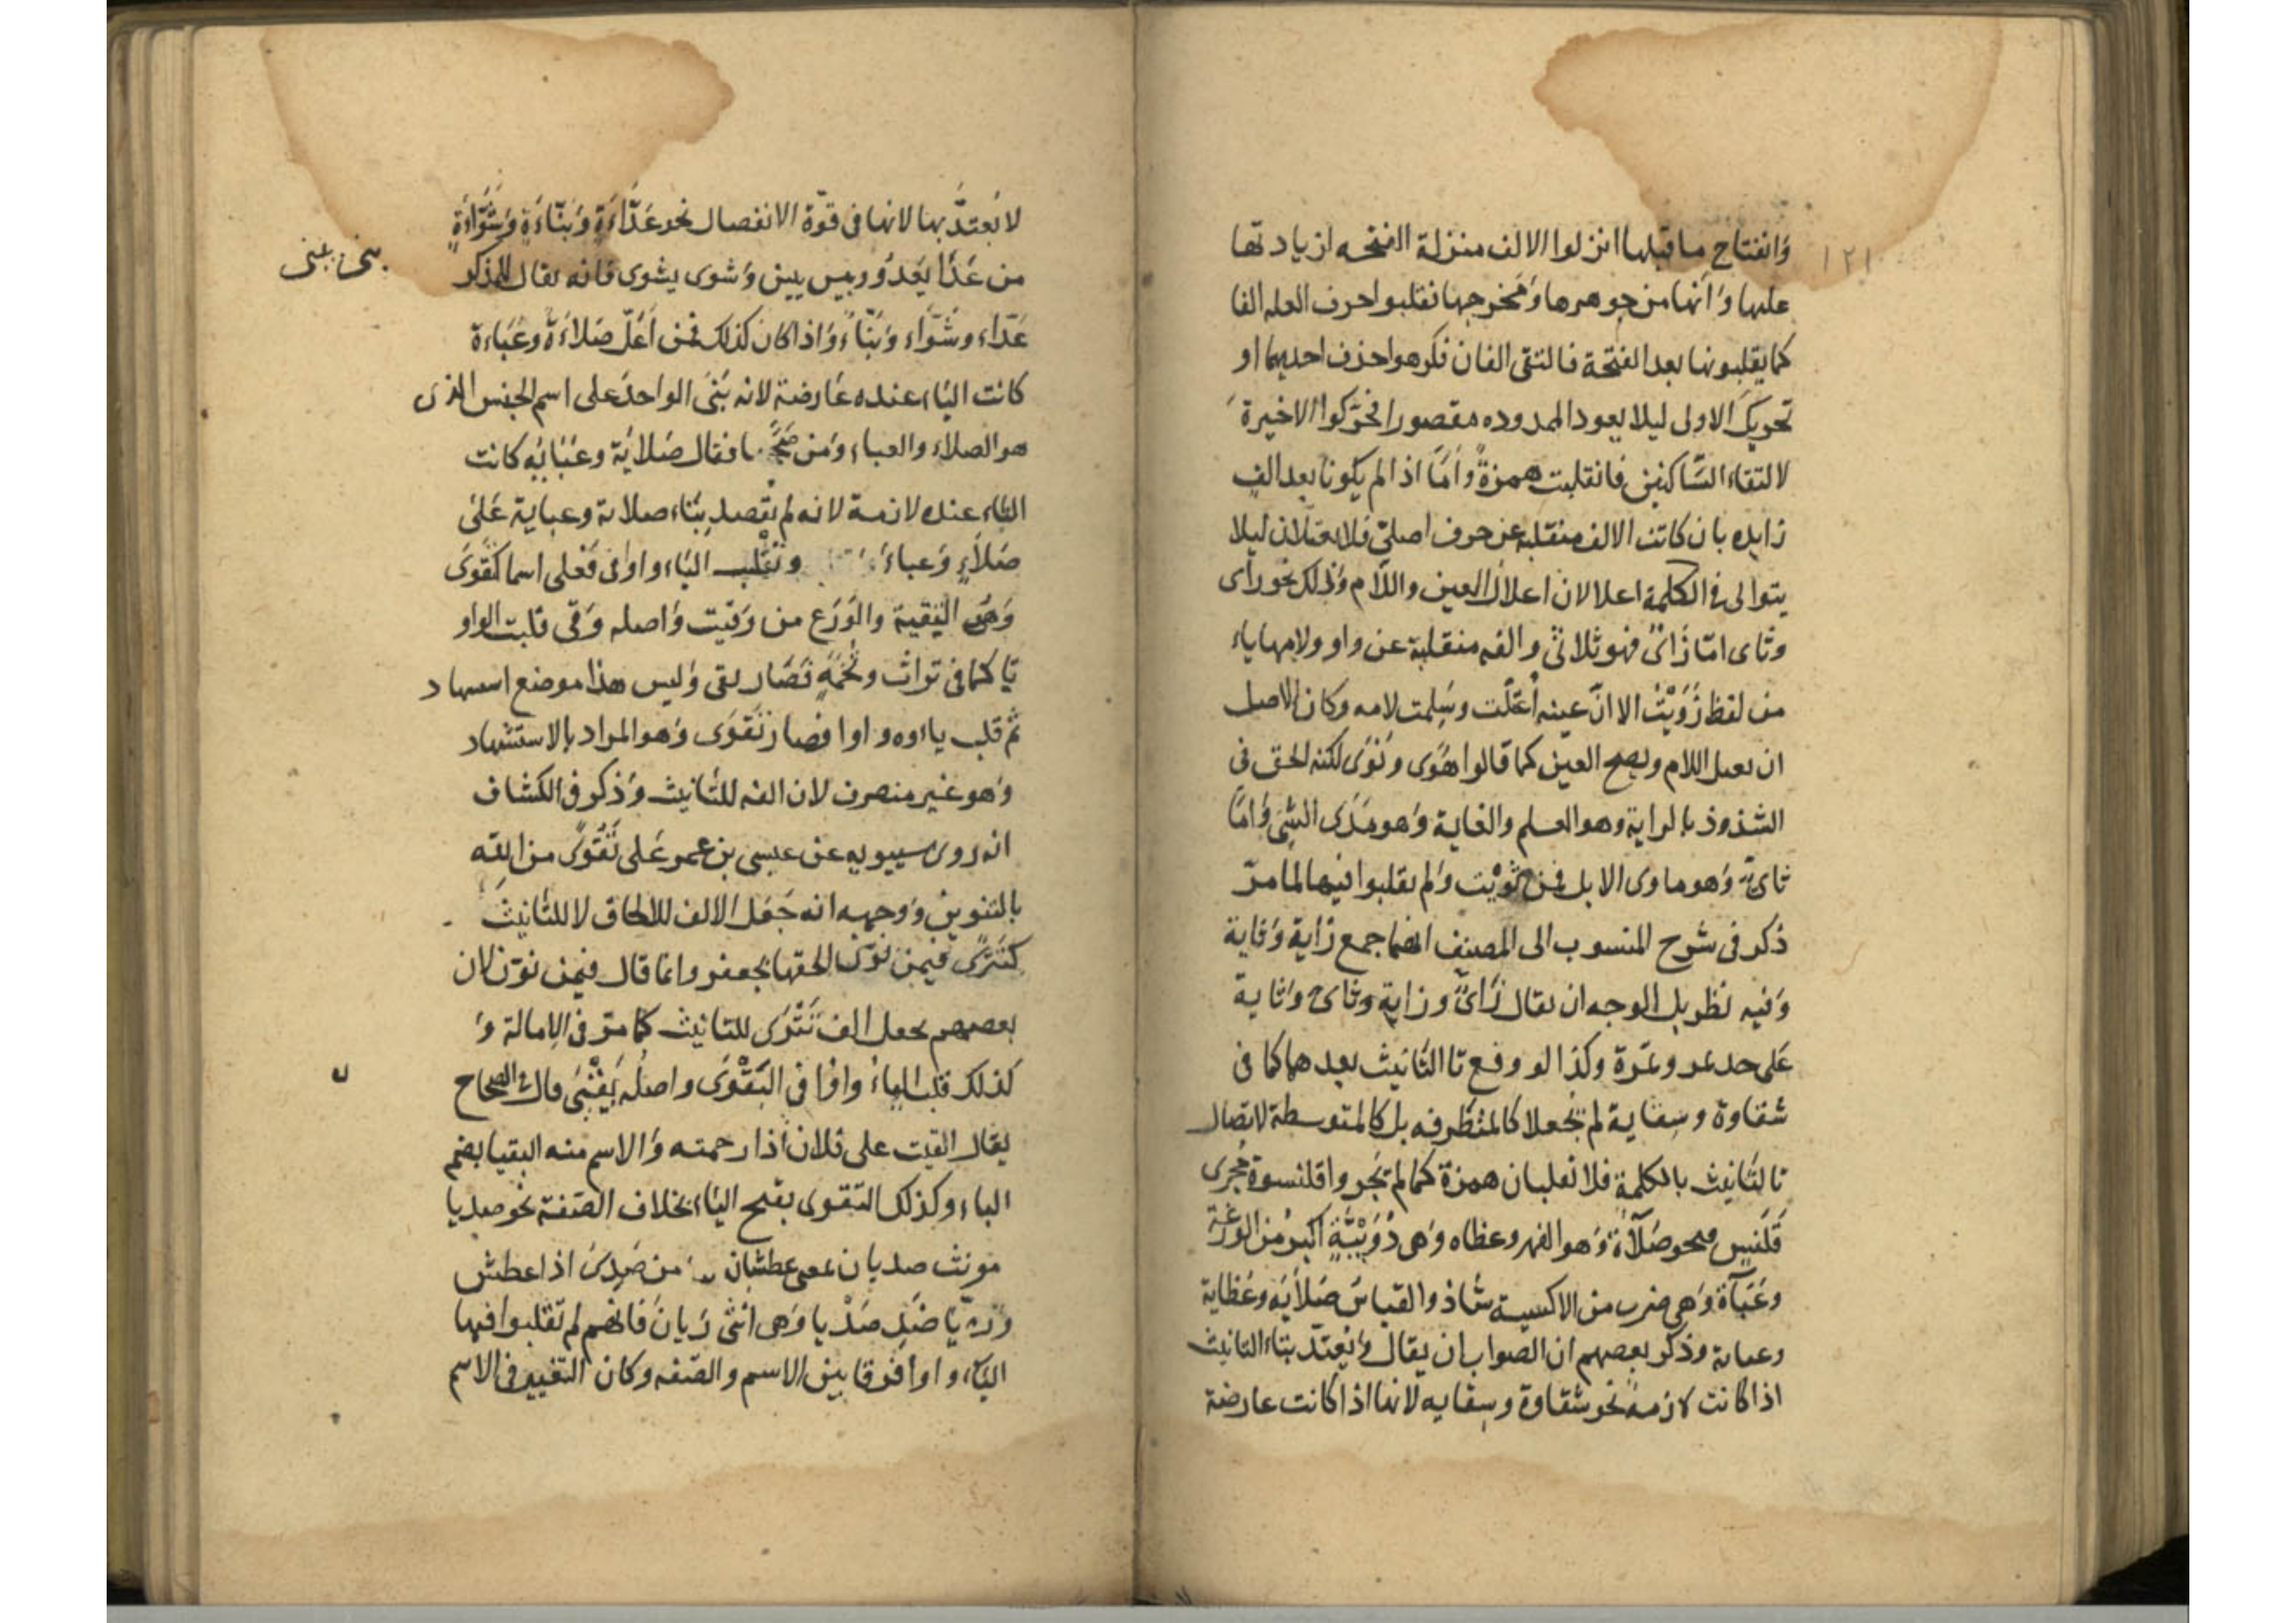 ١٢١
وَانفتاح ما قبلها انزلوا الالف منزلة الفتحه لزيادتها
عليها وَانها من جوهرها وَمخرجها نقلبوا حرف العله الفا
كما يقلبونها بعد الفتحة فالتقى الفان فكرهوا حذف احديهما او
تحريك الاولى ليلا يعود الممدوده مقصورا فحرّكوا الاخيرة
لالتقاء السَّاكنين فانقلبت همزةً وامَّا اذا لم يكونا بعد الفٍ
زايده بان كانت الالف منقلبة عن حرف اصلىّ فلا يعتلان ليلا
يتوالى فى الكلمة اعلالان اعلال العين واللّام وذلك نحو راى
وثاى امّا زَاىٌ فهو ثلاثى والفه منقلبة عن واو ولامها ياء
من لفظ زَوَيْتُ الا انّ عينه اُعتلّت وسَلِمت لامه وكان الاصل
ان يعل اللام ويصح العين كما قالوا هَوَى ونَوَى لكنه لحق فى
الشذوذ بالراية وهو العلم والغاية وَهو مَدَى الشئ وَامَّا
ثاىٌ وَهو ماوى الابل فمن ثويْت وَلم يقلبوا فيها لما مرّ
ذكر فى شرح المنسوب الى المصنف انهما جمع زاية وَثاية
وَفيه نظر بل الوجه ان يقال زَاىٌ وزاية وثاى وَثاية
عَلى حد تمر وتمرة وكذا لو وقع تا التَّانيث بعدهما كما فى
شقاوة وسقاية لم تجعلا كالمتطرفه بل كالمتوسطة لاتصال
تا التَّانيث بالكلمة فلا تقلبان همزة كما لم تُجروا قلنسوة مُجرى
قَلَنسٍ ونحو صَلَآءَة وَهو الفهر وعظاه وَهى دُوَيْبَّةٍ اكبر من الوزغة
وعَبَآءَة وَهى ضرب من الاكسية شاذ والقياسُ صَلَايَه وعَظاية
وعباية وذكر بعضهم ان الصواب ان يقال وَيُعتَدّ بتاء التانيث
اذا كانت لازمة نحو شقاوة وسقايه لانها اذا كانت عارضة
لا نَعتدّ بها لانها فى قوّة الانفصال نحو عَدَّاءَةٍ وَبنّاءَةٍ وَشَوّاءَةٍ
من عَدَا يَعْدُو وبنى يبنى وَشوى يشوى فانه يقال للمذكر
بنى يبنى
عَدّاء وشَوّاء وَبَنّاءٌ وَاذا كان كذلك فمن اَعَلّ صَلاءَة وعَبَاءة
كانت التاء عنده عَارضة لانه بَنَى الواحدَ على اسم الجنس الذى
هو الصلاء والعباء وَمن صَحَّحها فقال صَلايَة وعَبَايَه كانت
التاء عنده لازمة لانه لم يقصد بِناء صلاية وعباية عَلى
صَلاَءٍ وَعباءَ وتقلب اليَاء واوا فى فَعْلى اسما كتَقْوَى
وَهى التقية والوَرَع من وَقيت وَاصله وَقى قلبت الواو
تا كما فى تراث وتُخَمَةٍ فصَار تقى وَليس هذا موضع استشهاد
ثم قلب ياوه واوا فصار تَقوَى وَهو المراد بالاستشهاد
وَهو غير منصرف لان الفه للتانيث وَذكر فى الكشاف
انه روى سيبويه عن عيسى بن عمر عَلى تَقْوًى من الله
بالتنوين وَوجهه انه جَعَل الالف للالحاق لا للتانيثَ
كتَتْرًى فيمن نوّن الحقها بجعفر وانما قال فيمن نوّن لان
بعضهم يجعل الف تَتْرَى للتانيث كما مرّ فى الامالة وَ
كذلك قلب الياءُ واوًا فى البَقْوَى واصلُه بَقْيَى قال فى الصحاح
يقال ابقيت على فلان اذا رحمته وَالاسم منه البقيا بضم
الباء وكذلك البَقوى بفتح الباء بخلاف الصّفة نحو صديا
مونث صديان بمعنى عطشان من صَدِىَ اذا عطش
وَريّا ضَلِ صَدْيا وَهى انثى رَيانَ فانهم لم تقلبوا فيها
اليَاء واوا فرقا بين الاسم والصّفه وكان التغيير فى الاسم